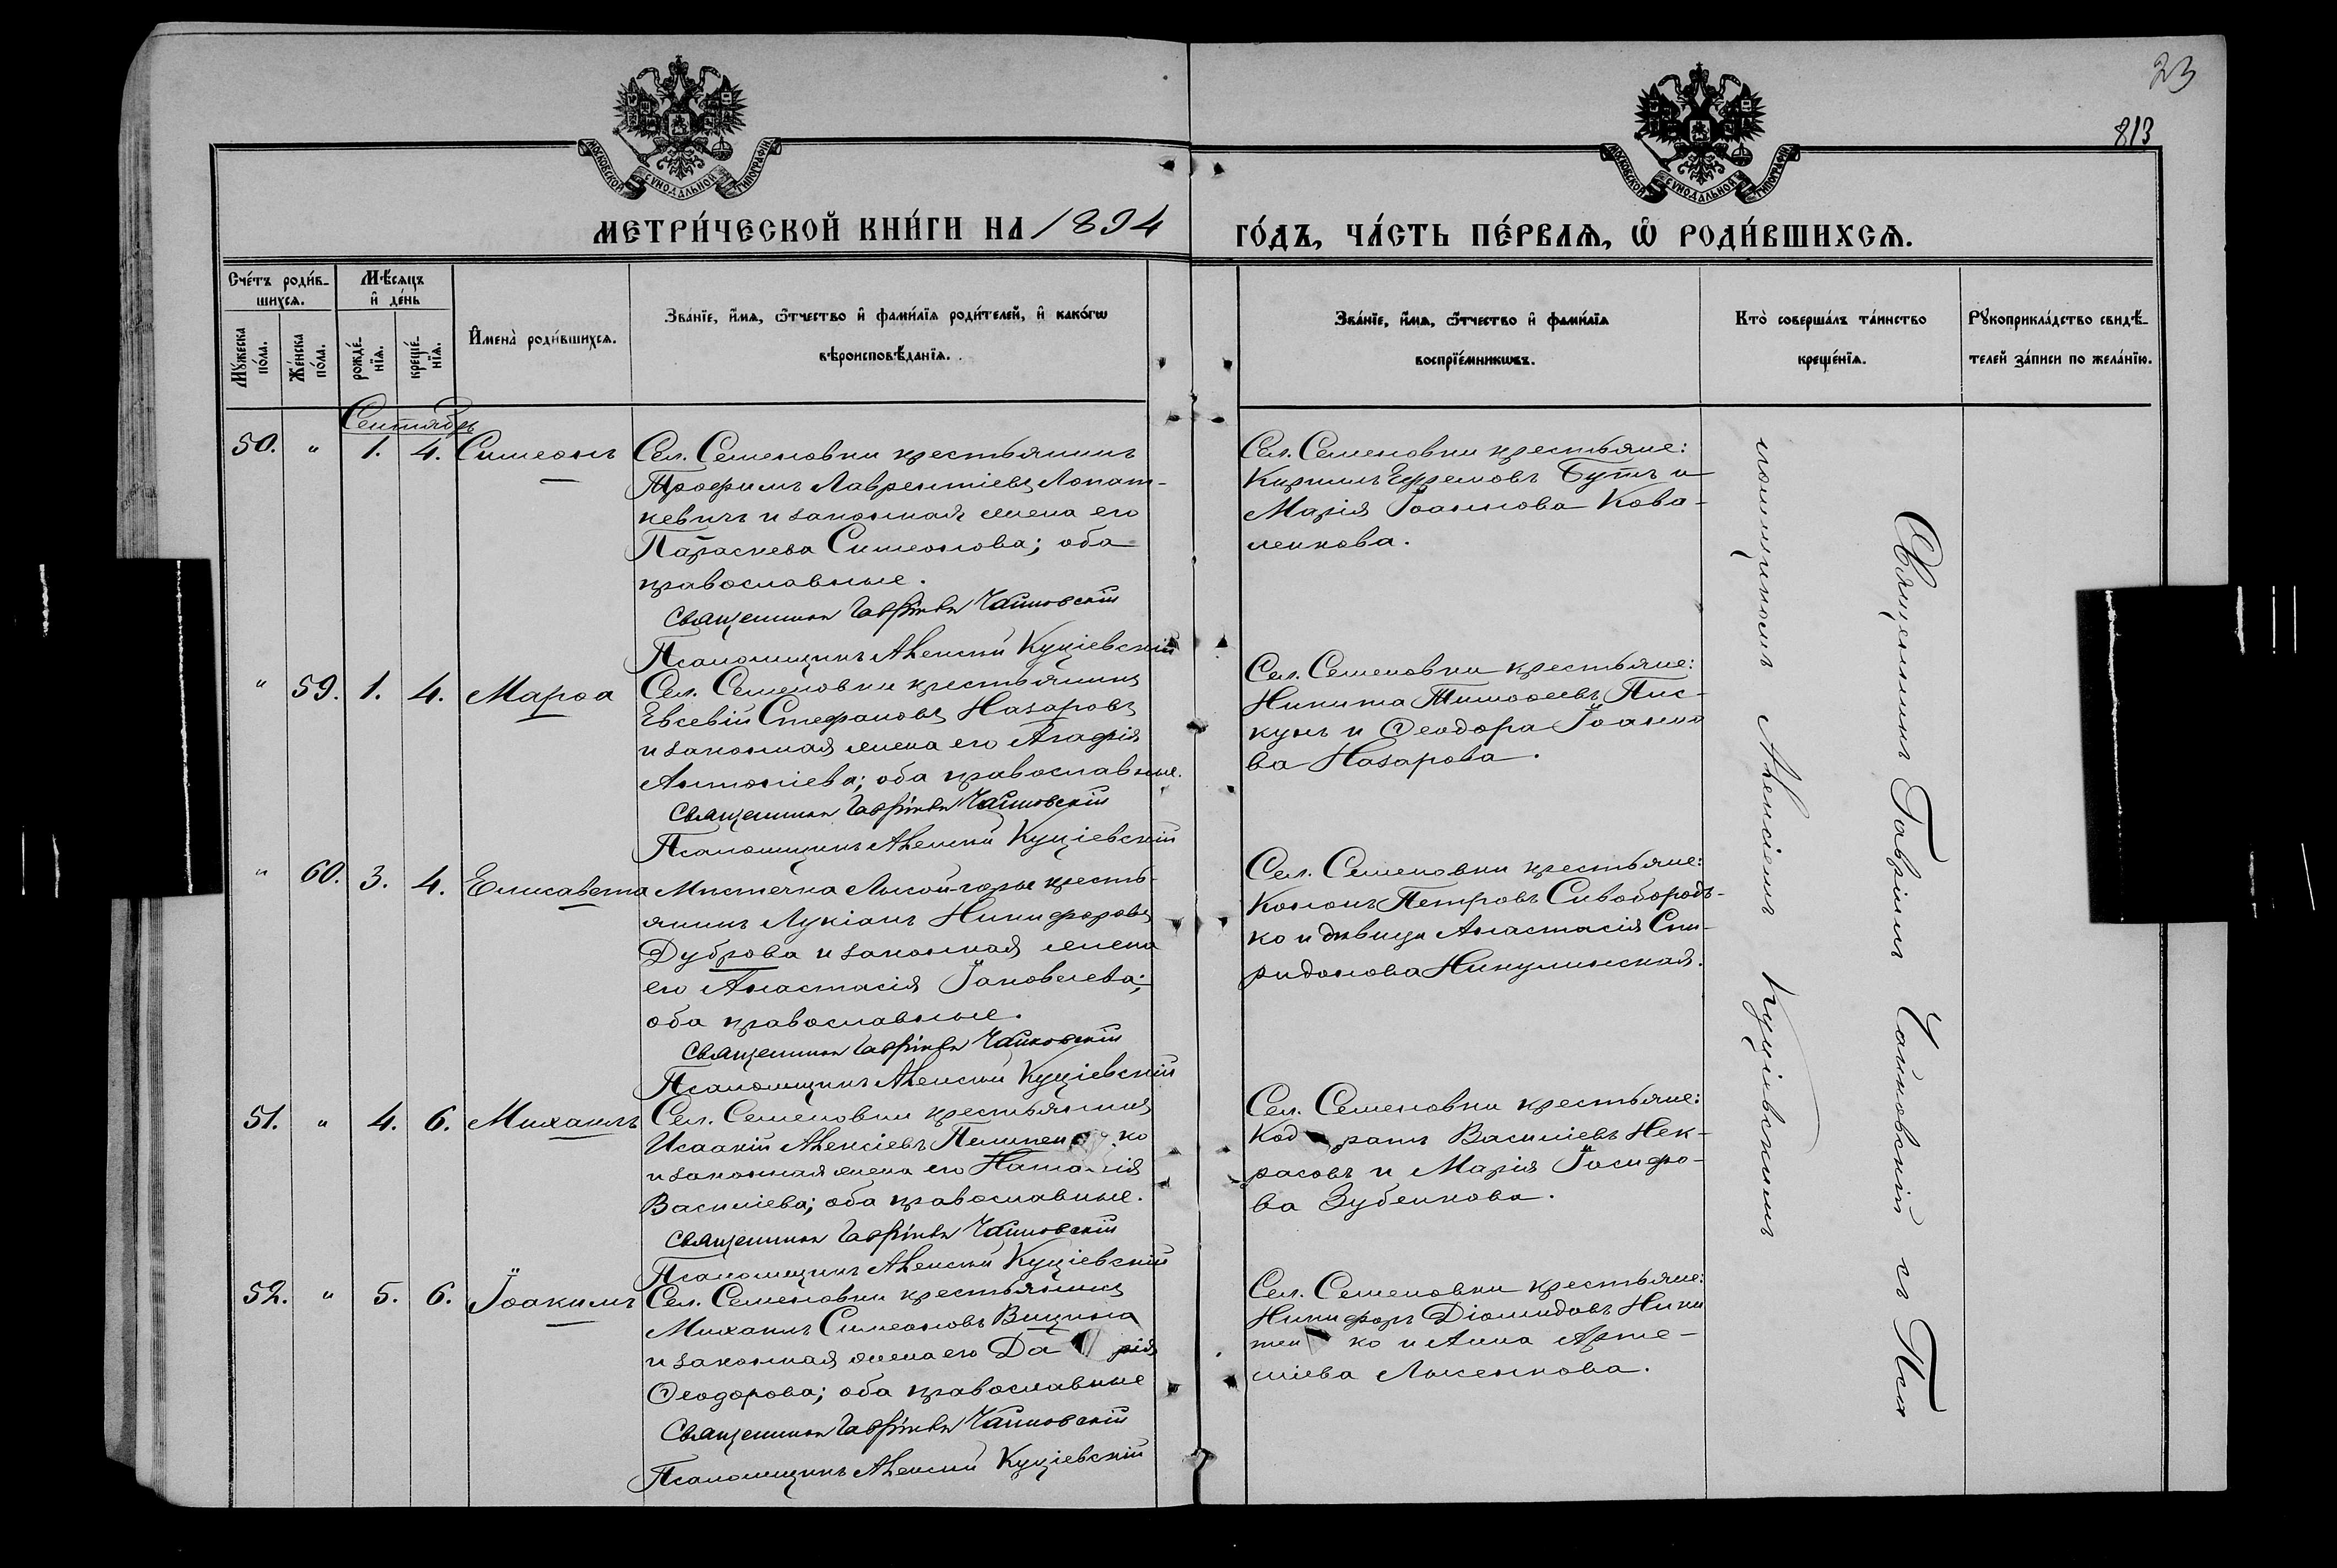 23
813
МОСКОВСКОЙ СѴНОДАЛЬНОЙ ТИПОГРАФІИ
МОСКОВСКОЙ СѴНОДАЛЬНОЙ ТИПОГРАФІИ
МЕТРИ́ЧЕСКОЙ КНИ́ГИ НА 1894
ГО́ДЪ, ЧА́СТЬ ПЕ́РВАѦ, Ѡ҆ РОДИ́ВШИХСѦ.
Сче́тъ роди́в-
шихсѧ.
Мѣ́сѧцъ
и҆ де́нь
Мꙋ́жеска по́ла.
Же́нска по́ла.
рожде́-нїѧ.
креще́-нїѧ.
И҆мена̀ роди́вшихсѧ.
Зва́нїе, и҆́мѧ, ѻ҆́тчество и҆ фами́лїѧ роди́телей, и҆ како́гѡ
вѣроисповѣ́данїѧ.
Зва́нїе, и҆́мѧ, ѻ҆́тчество и҆ фами́лїѧ
воспрїе́мникѡвъ.
Кто̀ соверша́лъ та́инство
креще́нїѧ.
Рꙋкоприкла́дство свидѣ́-
телей за́писи по жела́нїю.
Сентябрь
50. " 1. 4. Симеонъ Сел. Семеновки крестьянинъ
Трофимъ Лаврентіевъ Лопат-
кевичъ и законная жена его
Параскева Симеонова; оба
православные.
Священникъ Гавріилъ Чайковскій
Псаломщикъ Алексій Куціевскій
Сел. Семеновки крестьяне:
Кирилъ Ефремовъ Бутъ и
Марія Іоаннова Кова-
ленкова.
" 59. 1. 4. Марѳа Сел. Семеновки крестьянинъ
Евсевій Стефановъ Назаровъ
и законная жена его Агафія
Антоніева; оба православные.
Священникъ Гавріилъ Чайковскій
Псаломщикъ Алексій Куціевскій
Сел. Семеновки крестьяне:
Никита Тимоѳеевъ Пис-
кунъ и Ѳеодора Іоанно
ва Назарова.
" 60. 3. 4. Елисавета Мистечка Лысой-горы кресть-
янинъ Лукіанъ Никифоровъ
Дуброва и законная жена
его Анастасія Іаковлева;
оба православные.
Священникъ Гавріилъ Чайковскій
Псаломщикъ Алексій Куціевскій
Сел. Семеновки крестьяне:
Кононъ Петровъ Сивобородь-
ко и дѣвица Анастасія Спи-
ридонова Никулинская.
51. " 4. 6. Михаилъ Сел. Семеновки крестьянинъ
Исаакій Алексіевъ
и законная жена его Наталія
Василіева; оба православные.
Священникъ Гавріилъ Чайковскій
Псаломщикъ Алексій Куціевскій
Сел. Семеновки крестьяне:
Кодратъ Василіевъ Нек-
расовъ и Марія Іосифо-
ва Зубенкова.
52. " 5. 6. Іоакимъ Сел. Семеновки крестьянинъ
Михаилъ Симеоновъ Вицина
и законная жена его Дарія
Ѳеодорова; оба православные
Священникъ Гавріилъ Чайковскій
Псаломщикъ Алексій Куціевскій
Сел. Семеновки крестьяне:
Никифоръ Діомидовъ Ники
тенко и Анна Арте-
міева Лысенкова.
Священникъ Гавріилъ Чайковскій съ Пса
ломщикомъ Алексіемъ Куціевскимъ